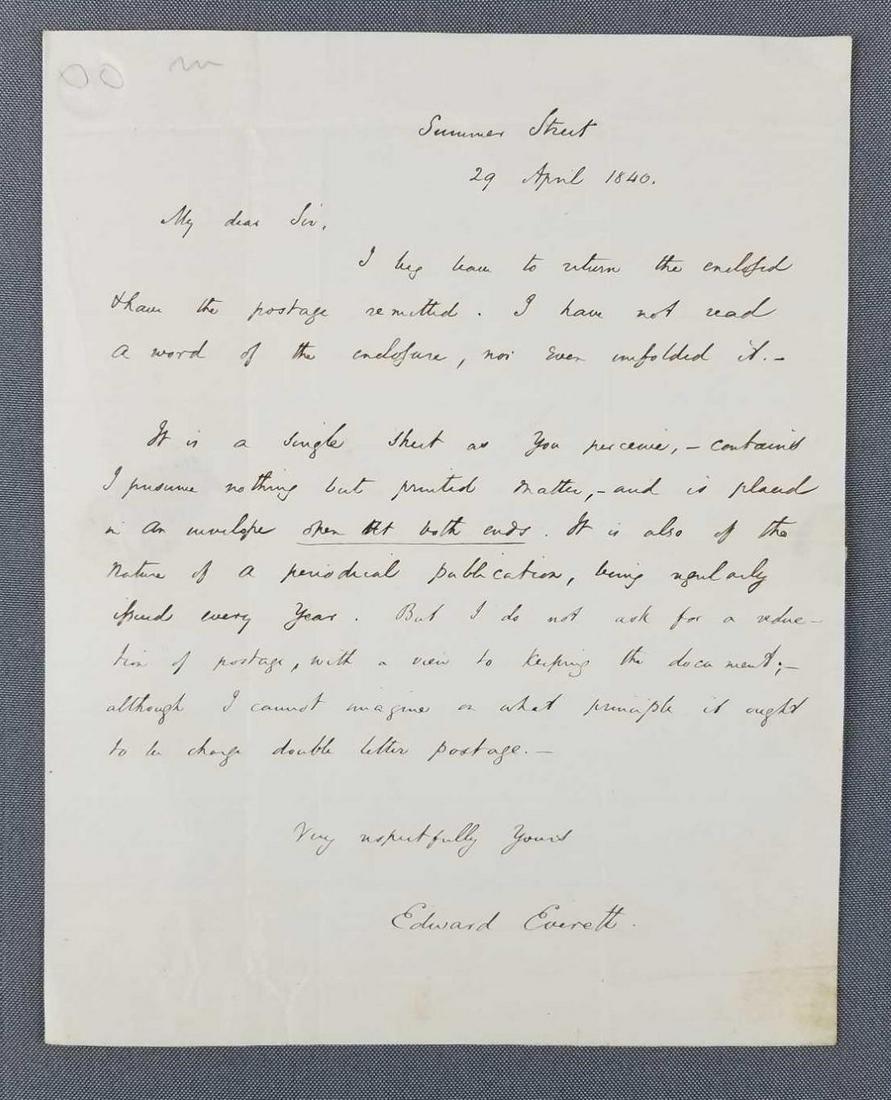 Summer Street
29 April 1840.
My dear Sir,
I beg leave to return the enclosed
& have the postage remitted. I have not read
a word of the enclosure, nor even unfolded it.–
It is a single sheet as you perceive,– contains
I presume nothing but printed matter,– and is placed
in an envelope open at both ends. It is also of the
nature of a periodical publication, being regularly
issued every year. But I do not ask for a reduc-
tion of postage, with a view to keeping the document;–
although I cannot imagine on what principle it ought
to be charge double letter postage.–
Very respectfully Yours
Edward Everett.